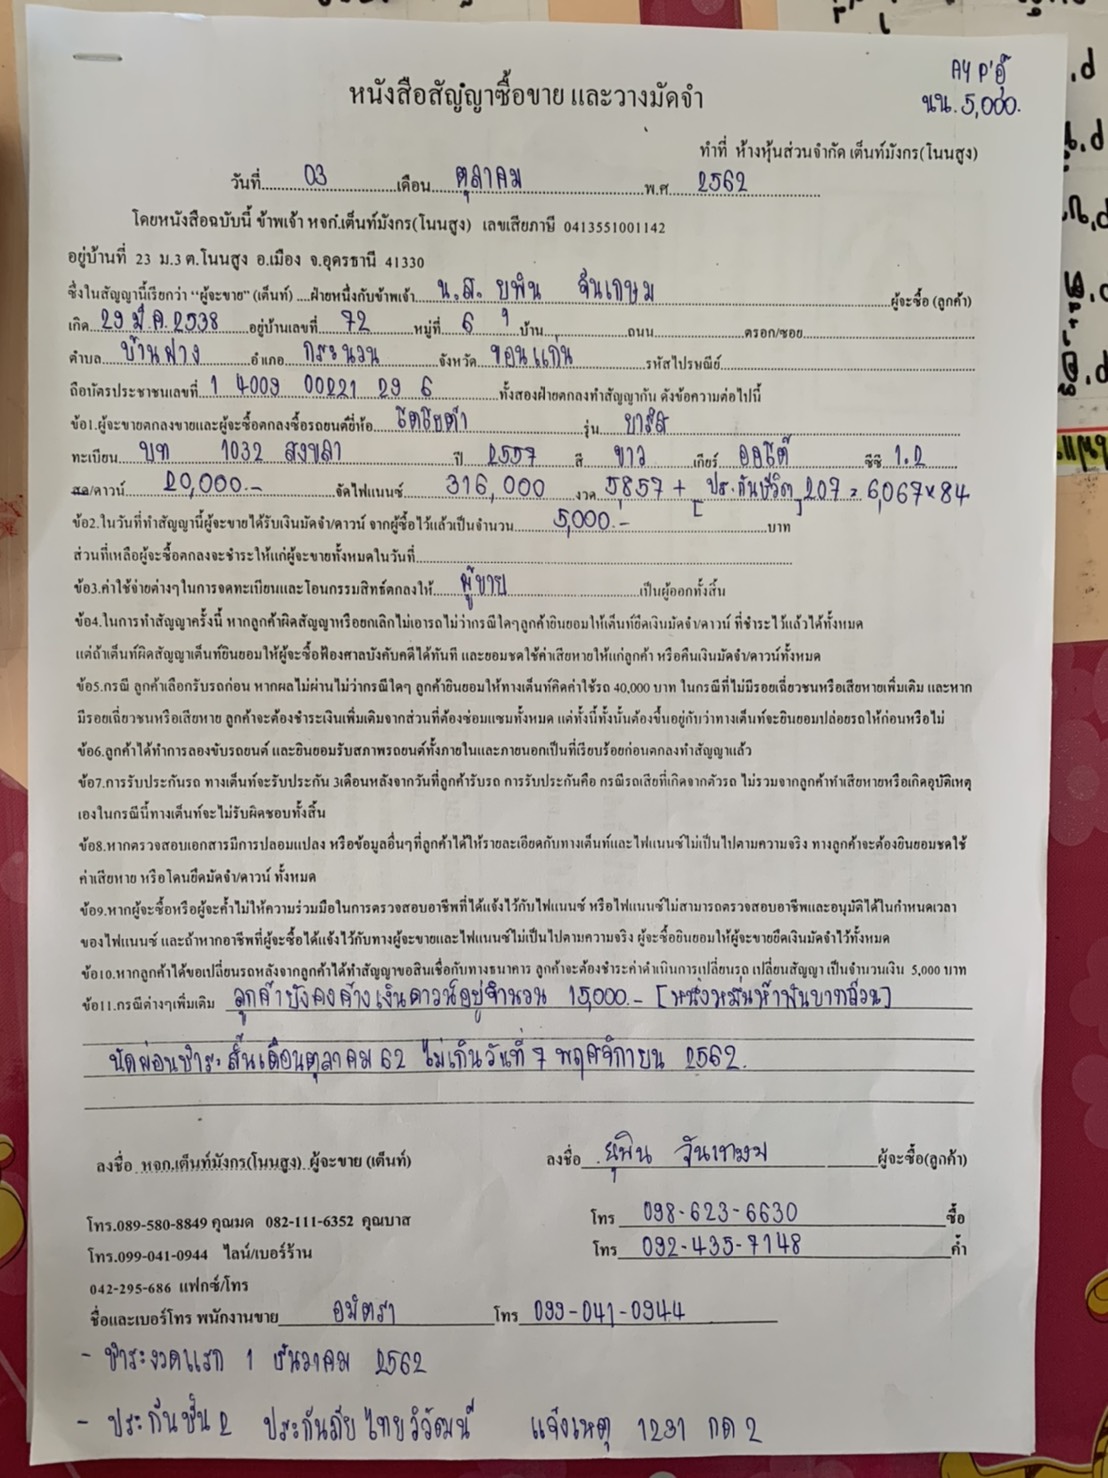 AY P'อู๊
นน. 5,000.
หนังสือสัญญาซื้อขาย และวางมัดจำ
ทำที่ ห้างหุ้นส่วนจำกัด เต็นท์มังกร(โนนสูง)
วันที่ 03 เดือน ตุลาคม พ.ศ 2562
โดยหนังสือฉบับนี้ ข้าพเจ้า หจก.เต็นท์มังกร(โนนสูง) เลขเสียภาษี 0413551001142
อยู่บ้านที่ 23 ม.3 ต.โนนสูง อ.เมือง จ.อุดรธานี 41330
ซึ่งในสัญญานี้เรียกว่า "ผู้จะขาย" (เต็นท์) ....ฝ่ายหนึ่งกับข้าพเจ้า น.ส. ยุพิน จันเกษม ผู้จะซื้อ (ลูกค้า)
เกิด 29 มี.ค. 2538 อยู่บ้านเลขที่ 72 หมู่ที่ 6 บ้าน ถนน ตรอก/ซอย
ตำบล บ้านฝาง อำเภอ กระนวน จังหวัด ขอนแก่น รหัสไปรษณีย์
ถือบัตรประชาชนเลขที่ 1 4009 00221 29 6 ทั้งสองฝ่ายตกลงทำสัญญากัน ดังข้อความต่อไปนี้
ข้อ1.ผู้จะขายตกลงขายและผู้จะซื้อตกลงซื้อรถยนต์ยี่ห้อ โตโยต้า รุ่น ยาริส
ทะเบียน บท 1032 สงขลา ปี 2557 สี ขาว เกียร์ ออโต้ ซีซี 1.2
สด/ดาวน์ 20,000.- จัดไฟแนนซ์ 316,000 งวด 5857 + [ประกันชีวิต] 207 = 6,067 x 84
ข้อ2.ในวันที่ทำสัญญานี้ผู้จะขายได้รับเงินมัดจำ/ดาวน์ จากผู้ซื้อไว้แล้วเป็นจำนวน 5,000.- บาท
ส่วนที่เหลือผู้จะซื้อตกลงจะชำระให้แก่ผู้จะขายทั้งหมดในวันที่
ข้อ3.ค่าใช้จ่ายต่างๆในการจดทะเบียนและโอนกรรมสิทธ์ตกลงให้ ผู้ขาย เป็นผู้ออกทั้งสิ้น
ข้อ4.ในการทำสัญญาครั้งนี้ หากลูกค้าผิดสัญญาหรือยกเลิกไม่เอารถไม่ว่ากรณีใดๆลูกค้ายินยอมให้เต็นท์ยึดเงินมัดจำ/ดาวน์ ที่ชำระไว้แล้วได้ทั้งหมด
แต่ถ้าเต็นท์ผิดสัญญาเต็นท์ยินยอมให้ผู้จะซื้อฟ้องศาลบังคับคดีได้ทันที และยอมชดใช้ค่าเสียหายให้แก่ลูกค้า หรือคืนเงินมัดจำ/ดาวน์ทั้งหมด
ข้อ5.กรณี ลูกค้าเลือกรับรถก่อน หากผลไม่ผ่านไม่ว่ากรณีใดๆ ลูกค้ายินยอมให้ทางเต็นท์คิดค่าใช้รถ 40,000 บาท ในกรณีที่ไม่มีรอยเฉี่ยวชนหรือเสียหายเพิ่มเติม และหาก
มีรอยเฉี่ยวชนหรือเสียหาย ลูกค้าจะต้องชำระเงินเพิ่มเติมจากส่วนที่ต้องซ่อมแซมทั้งหมด แต่ทั้งนี้ทั้งนั้นต้องขึ้นอยู่กับว่าทางเต็นท์จะยินยอมปล่อยรถให้ก่อนหรือไม่
ข้อ6.ลูกค้าได้ทำการลองขับรถยนต์ และยินยอมรับสภาพรถยนต์ทั้งภายในและภายนอกเป็นที่เรียบร้อยก่อนตกลงทำสัญญาแล้ว
ข้อ7.การรับประกันรถ ทางเต็นท์จะรับประกัน 3เดือนหลังจากวันที่ลูกค้ารับรถ การรับประกันคือ กรณีรถเสียที่เกิดจากตัวรถ ไม่รวมจากลูกค้าทำเสียหายหรือเกิดอุบัติเหตุ
เองในกรณีนี้ทางเต็นท์จะไม่รับผิดชอบทั้งสิ้น
ข้อ8.หากตรวจสอบเอกสารมีการปลอมแปลง หรือข้อมูลอื่นๆที่ลูกค้าได้ให้รายละเอียดกับทางเต็นท์และไฟแนนซ์ไม่เป็นไปตามความจริง ทางลูกค้าจะต้องยินยอมชดใช้
ค่าเสียหาย หรือโดนยึดมัดจำ/ดาวน์ ทั้งหมด
ข้อ9.หากผู้จะซื้อหรือผู้จะค้ำไม่ให้ความร่วมมือในการตรวจสอบอาชีพที่ได้แจ้งไว้กับไฟแนนซ์ หรือไฟแนนซ์ไม่สามารถตรวจสอบอาชีพและอนุมัติได้ในกำหนดเวลา
ของไฟแนนซ์ และถ้าหากอาชีพที่ผู้จะซื้อได้แจ้งไว้กับทางผู้จะขายและไฟแนนซ์ไม่เป็นไปตามความจริง ผู้จะซื้อยินยอมให้ผู้จะขายยึดเงินมัดจำไว้ทั้งหมด
ข้อ10.หากลูกค้าได้ขอเปลี่ยนรถหลังจากลูกค้าได้ทำสัญญาขอสินเชื่อกับทางธนาคาร ลูกค้าจะต้องชำระค่าดำเนินการเปลี่ยนรถ เปลี่ยนสัญญา เป็นจำนวนเงิน 5,000 บาท
ข้อ11.กรณีต่างๆเพิ่มเติม ลูกค้ายังคงค้างเงินดาวน์อยู่จำนวน 15,000.- [หนึ่งหมื่นห้าพันบาทถ้วน]
นัดผ่อนชำระสิ้นเดือนตุลาคม 62 ไม่เกินวันที่ 7 พฤศจิกายน 2562.
ลงชื่อ หจก.เต็นท์มังกร(โนนสูง) ผู้จะขาย (เต็นท์) ลงชื่อ ยุพิน จันเกษม ผู้จะซื้อ(ลูกค้า)
โทร.089-580-8849 คุณมด 082-111-6352 คุณบาส โทร 098-623-6630 ซื้อ
โทร.099-041-0944 ไลน์/เบอร์ร้าน โทร 092-435-7148 ค้ำ
042-295-686 แฟกซ์/โทร
ชื่อและเบอร์โทร พนักงานขาย อมิตรา โทร 099-041-0944
- ชำระงวดแรก 1 ธันวาคม 2562
- ประกันชั้น 2 ประกันภัยไทยวิวัฒน์ แจ้งเหตุ 1231 กด 2